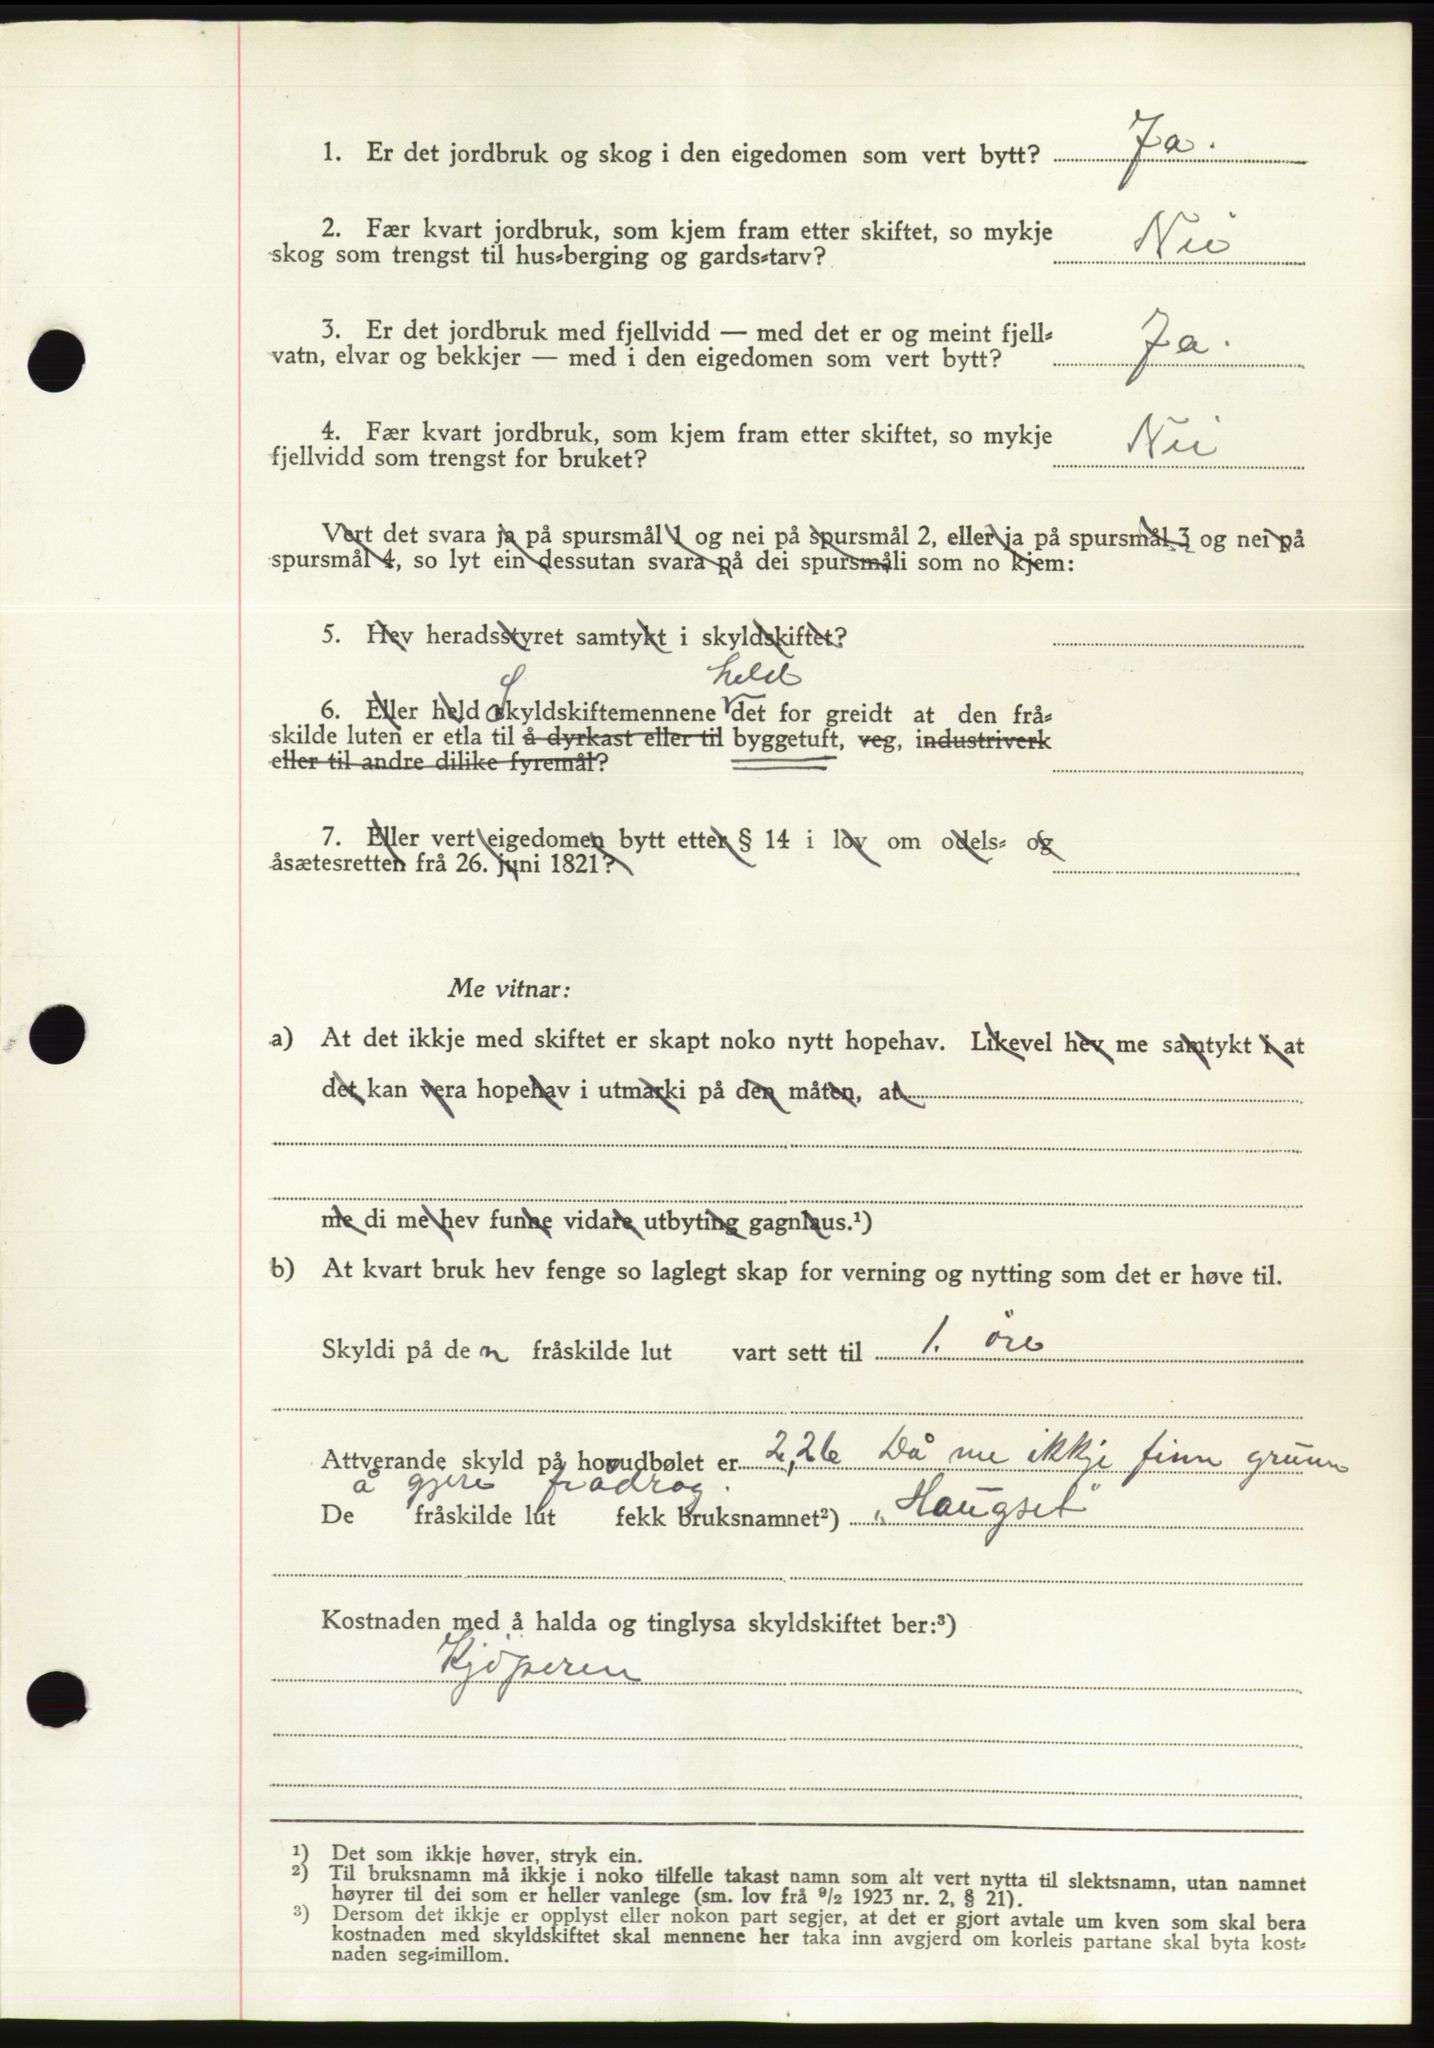 1. Er det jordbruk og skog i den eigedomen som vert bytt? Ja.
2. Fær kvart jordbruk, som kjem fram etter skiftet, so mykje
skog som trengst til hus=berging og gards=tarv? Nei
3. Er det jordbruk med fjellvidd — med det er og meint fjell=
vatn, elvar og bekkjer — med i den eigedomen som vert bytt? Ja.
4. Fær kvart jordbruk, som kjem fram etter skiftet, so mykje
fjellvidd som trengst for bruket? Nei
Vert det svara ja på spursmål 1 og nei på spursmål 2, eller ja på spursmål 3 og nei på
spursmål 4, so lyt ein dessutan svara på dei spursmåli som no kjem:
5. Hev heradsstyret samtykt i skyldskiftet?
held
6. Eller held Skyldskiftemennene det for greidt at den frå=
skilde luten er etla til å dyrkast eller til byggetuft, veg, industriverk
eller til andre dilike fyremål?
7. Eller vert eigedomen bytt etter § 14 i lov om odels= og
åsætesretten frå 26. juni 1821?
Me vitnar:
a) At det ikkje med skiftet er skapt noko nytt hopehav. Likevel hev me samtykt i at
det kan vera hopehav i utmarki på den måten, at
me di me hev funne vidare utbyting gagnlaus.¹)
b) At kvart bruk hev fenge so laglegt skap for verning og nytting som det er høve til.
Skyldi på den fråskilde lut vart sett til 1. öre
Attverande skyld på hovudbølet er 2,26 Då me ikkje finn grunn
å gjere frådrag.
De fråskilde lut fekk bruksnamnet²) „Haugset"
Kostnaden med å halda og tinglysa skyldskiftet ber:³)
Kjöperen
¹) Det som ikkje høver, stryk ein.
²) Til bruksnamn må ikkje i noko tilfelle takast namn som alt vert nytta til slektsnamn, utan namnet
høyrer til dei som er heller vanlege (sm. lov frå ⁹/₂ 1923 nr. 2, § 21).
³) Dersom det ikkje er opplyst eller nokon part segjer, at det er gjort avtale um kven som skal bera
kostnaden med skyldskiftet skal mennene her taka inn avgjerd om korleis partane skal byta kost=
naden seg=imillom.